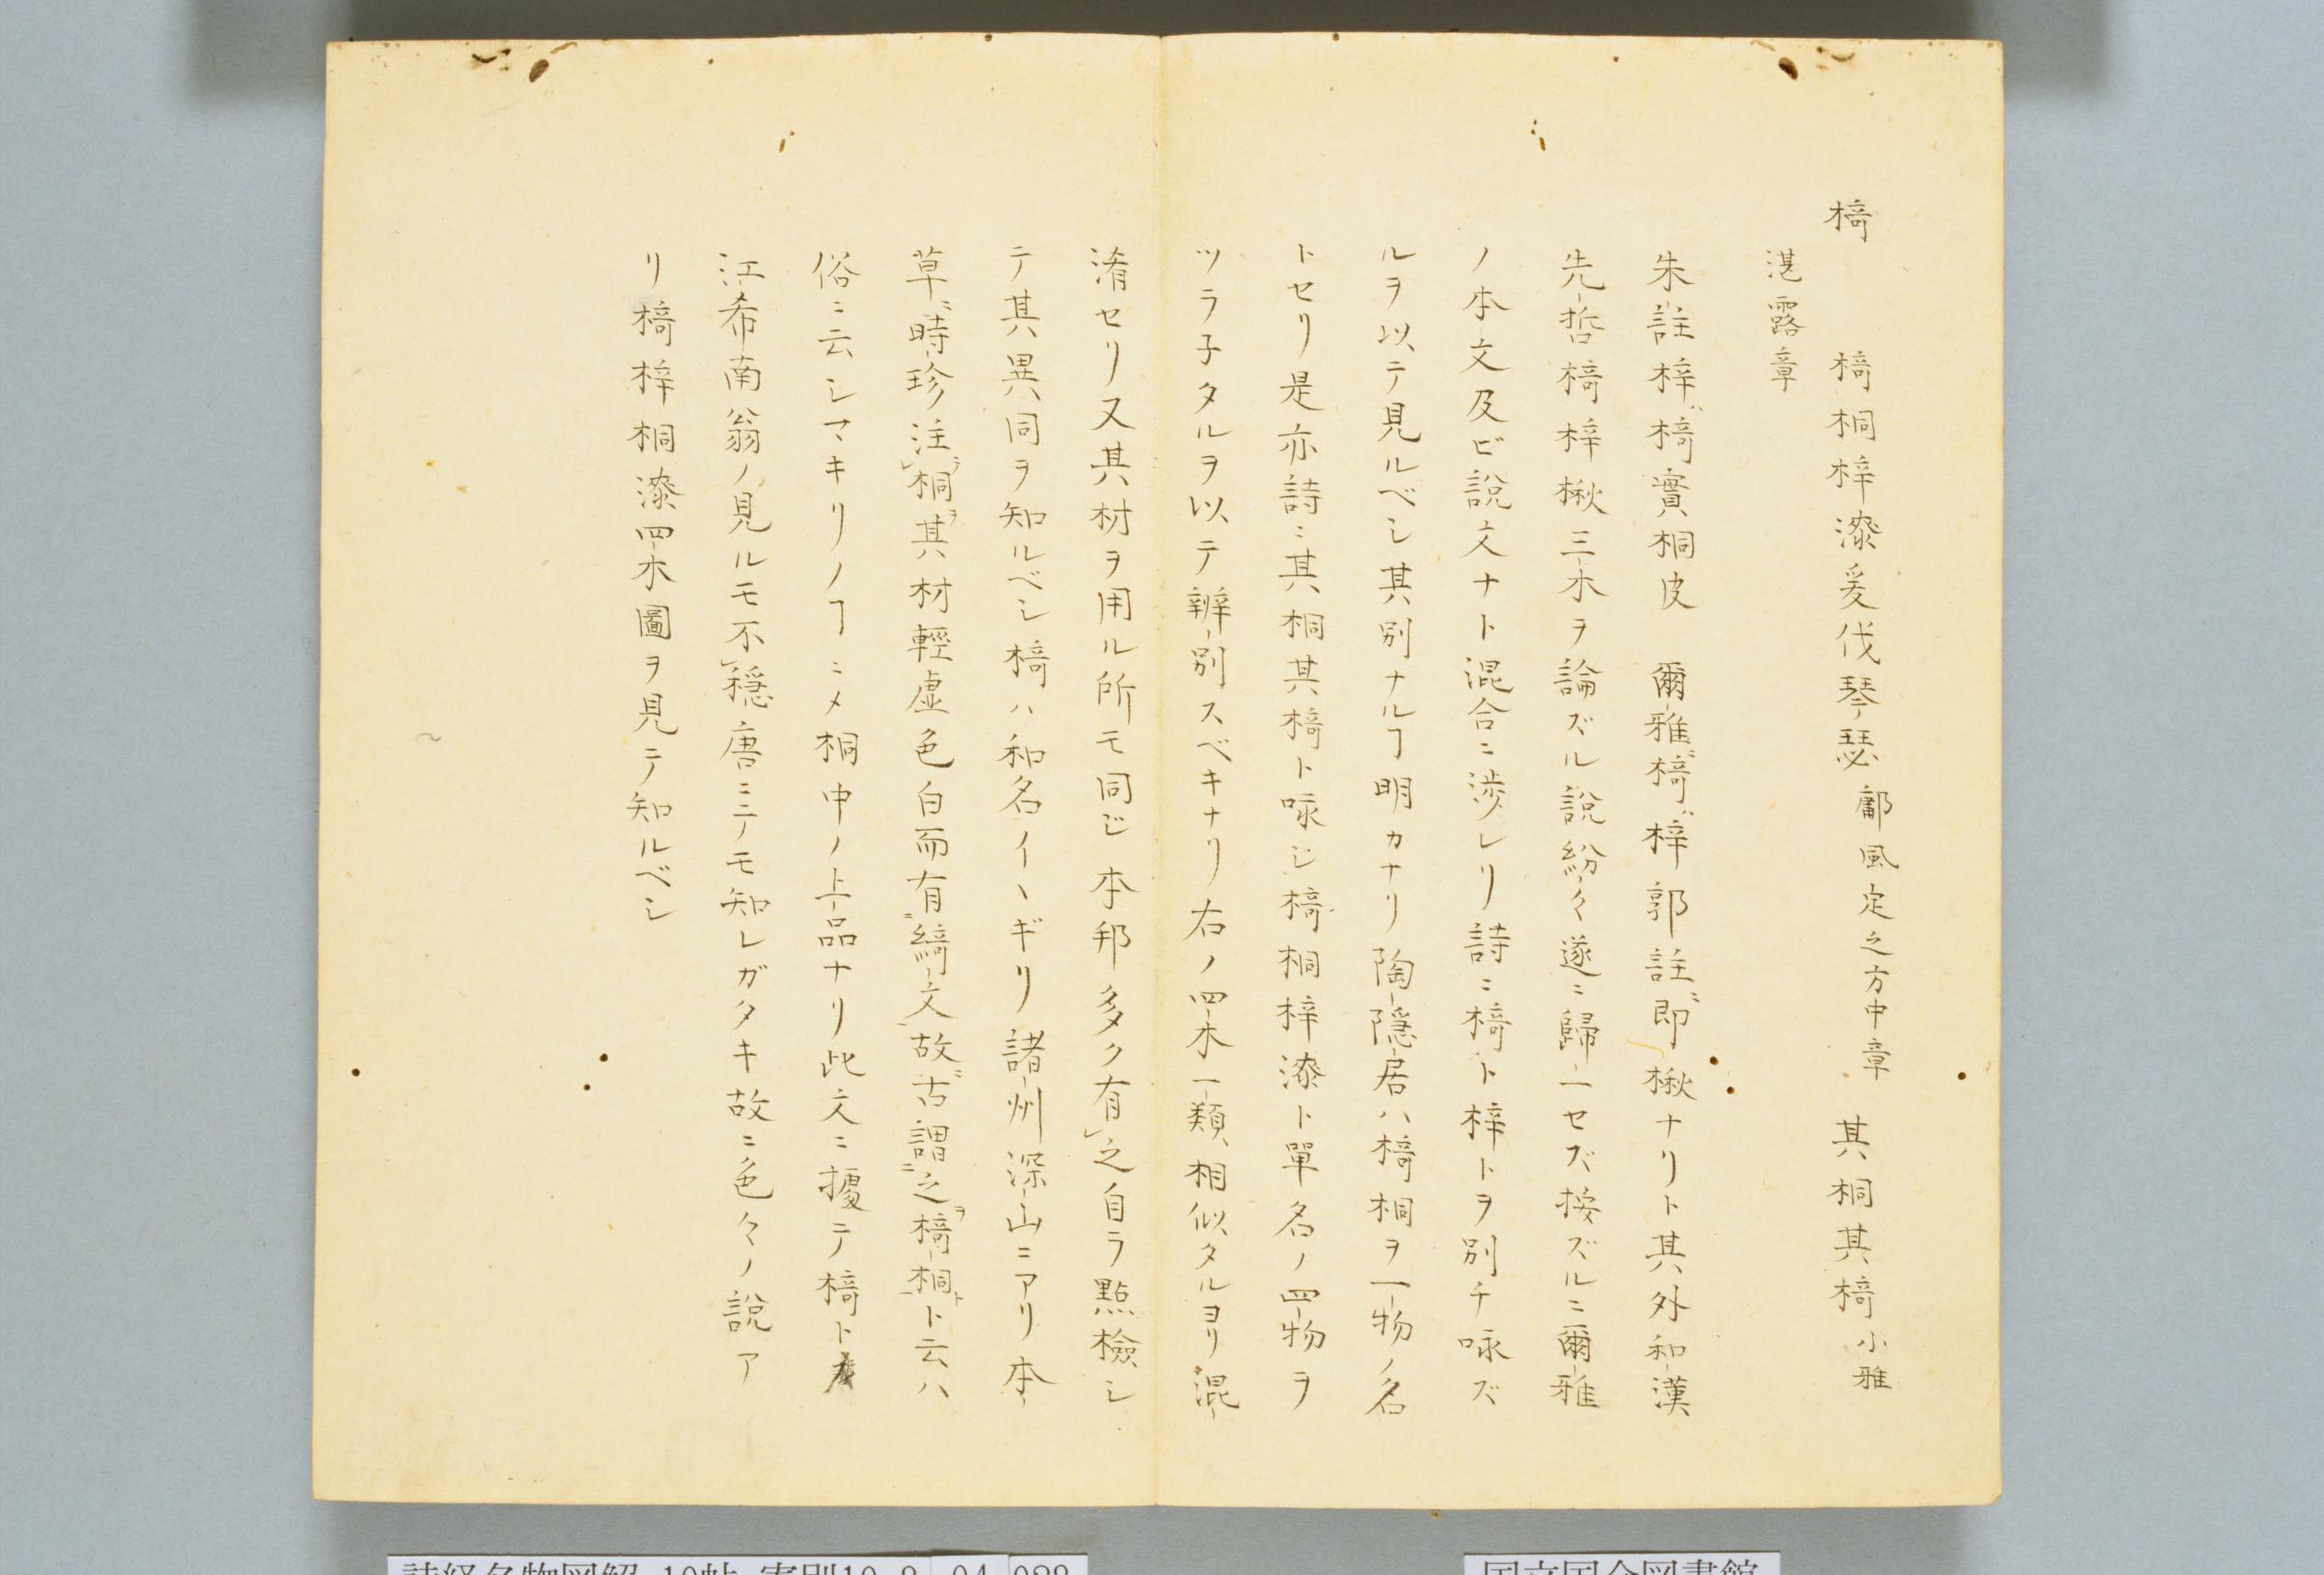 椅　椅桐梓漆爰伐琴瑟 鄘風定之方中章 其桐其椅 小雅
湛露章
朱註梓ハ椅實桐皮　爾雅ニ椅ハ梓郭註ニ即楸ナリト其外和漢
先哲椅梓楸三木ヲ論ズル説紛々遂ニ歸一セズ按ズルニ爾雅
ノ本文及ビ説文ナト混合ニ渉レリ詩ニ椅ト梓トヲ別チ咏ズ
ルヲ以テ見ルベシ其別ナルヿ明カナリ陶隠居ハ椅桐ヲ一物ノ名
トセリ是亦詩ニ其桐其椅ト咏じ椅桐梓漆ト單名ノ四物ヲ
ツラ子タルヲ以テ辨別スベキナリ右ノ四木一類相似タルヨリ混
淆セリ又其材ヲ用ル所モ同じ本邦多ク有レ之自ラ點檢シ
テ其異同ヲ知ルベシ椅ハ和名イヽギリ諸州深山ニアリ本
草ニ時珍注レ桐ヲ其材輕虚色白而有ニ綺文一故ニ古謂ニ之ヲ椅桐一ト云ハ
俗ニ云シマキリノヿニメ桐中ノ上品ナリ此文ニ據テ椅ト
江希南翁ノ見ルモ不レ穏唐ニテモ知レガタキ故ニ色々ノ説ア
リ椅梓桐漆四木圖ヲ見テ知ルベシ
詩経名物図解 10帖 寄別10-8 04 028
国立国会図書館